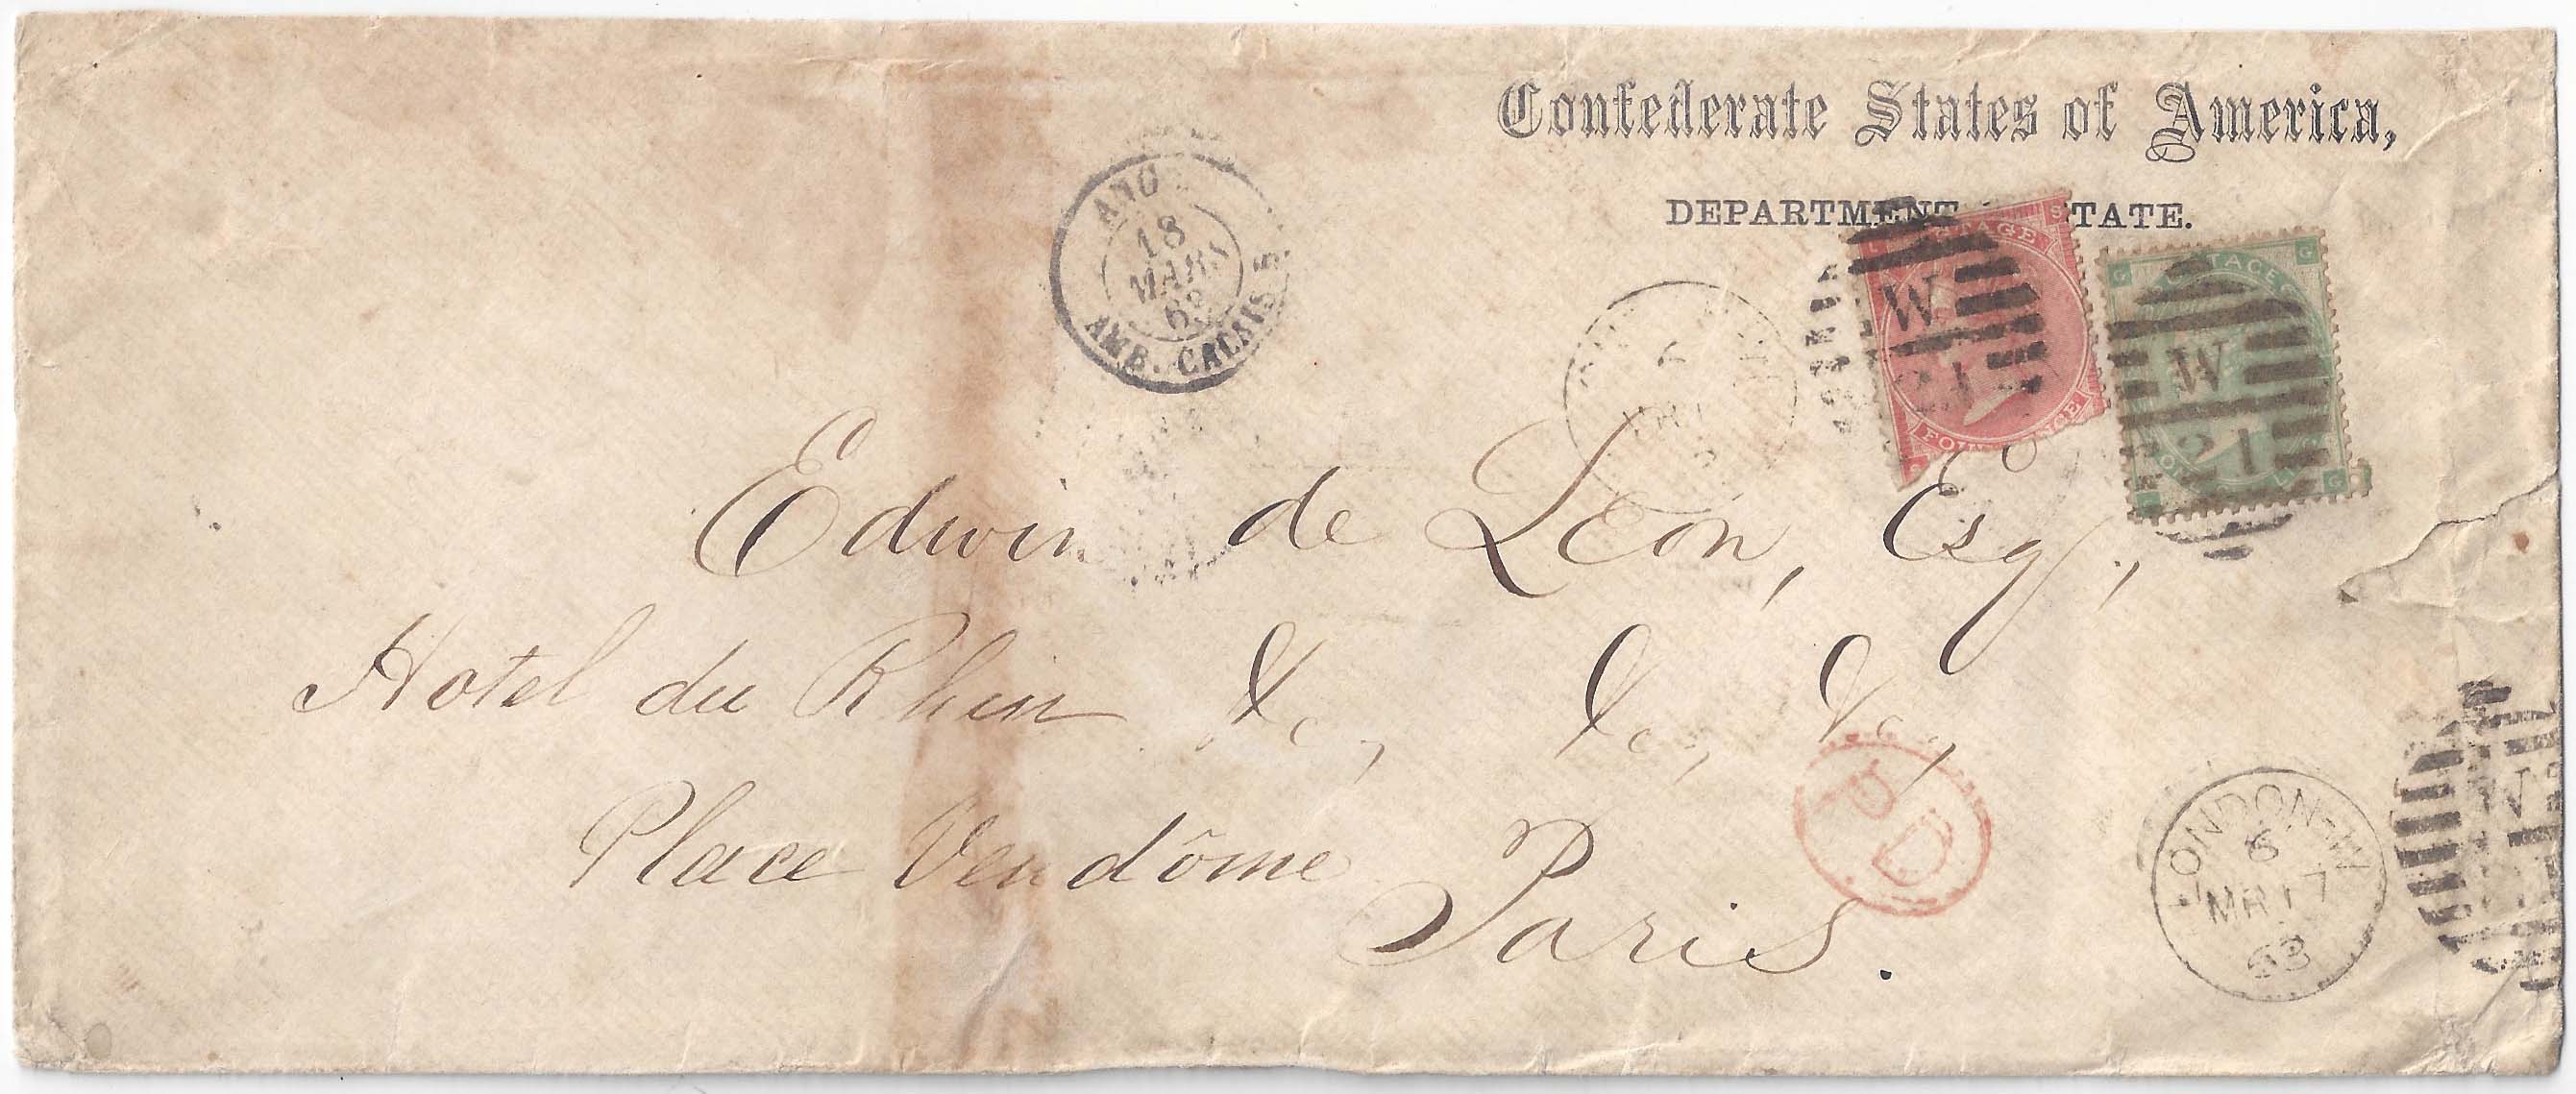 Confederate States of America,
DEPARTMENT STATE.
ANG
18
MARS
63
AMB. CALAIS
POSTAGE
S
W
21
FOUR PENCE
G POSTAGE G
W
21
G G
Edwin de Leon, Esq.,
Hotel du Rhin &c, &c, &c,
Place Vendôme
Paris.
PD
LONDON-W
6
MR 17
63
W